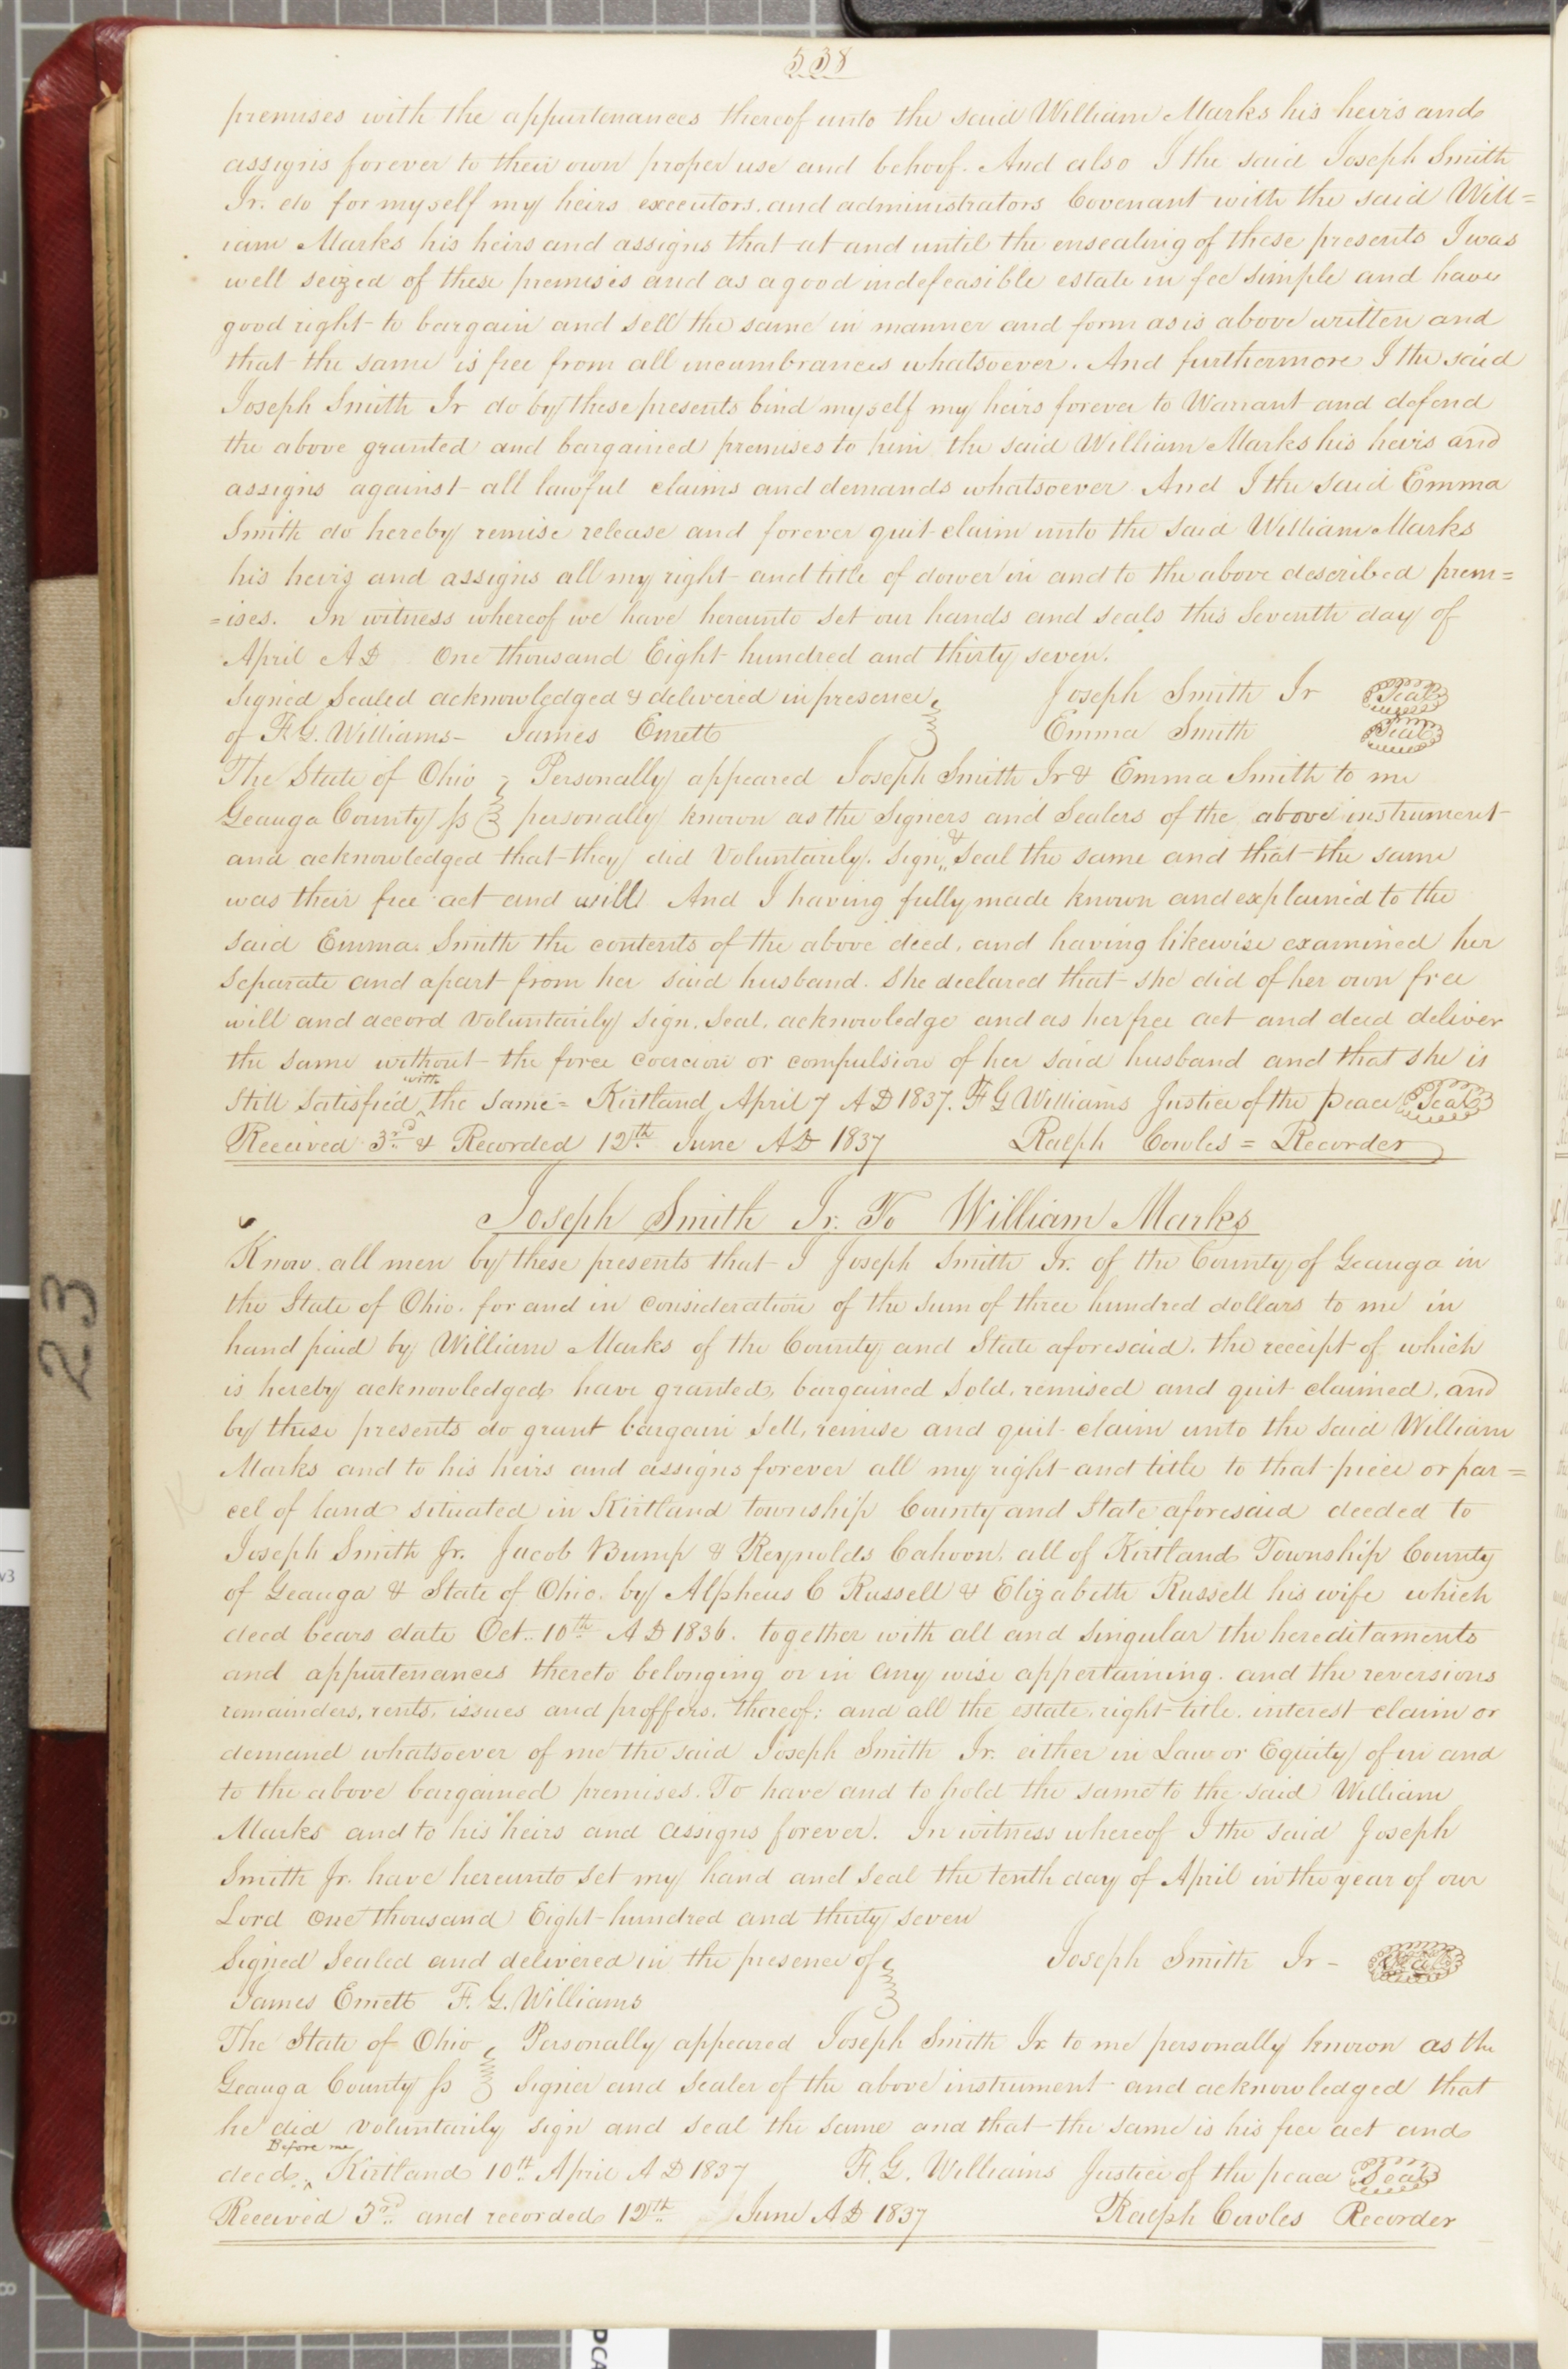 538
premises with the appurtenances thereof unto the said William Marks his heirs and
assigns forever to their own proper use and behoof. And also I the said Joseph Smith
Jr. do for myself my heirs executors, and administrators Covenant with the said Will=
iam Marks his heirs and assigns that at and until the ensealing of these presents I was
well seized of these premises and as a good indefeasible estate in fee simple and have
good right to bargain and sell the same in manner and form as is above written and
that the same is free from all incumbrances whatsoever. And furthermore I the said
Joseph Smith Jr do by these presents bind myself my heirs forever to Warrant and defend
the above granted and bargained premises to him the said William Marks his heirs and
assigns against all lawful claims and demands whatsoever And I the said Emma
Smith do hereby remise release and forever quit claim unto the said William Marks
his heirs and assigns all my right and title of dower in and to the above described prem=
=ises. In witness whereof we have hereunto set our hands and seals this Seventh day of
April AD One thousand Eight hundred and thirty seven.
Signed Sealed acknowledged & delivered in presence Joseph Smith Jr Seal
of F.G. Williams— James Emett Emma Smith Seal
The State of Ohio Personally appeared Joseph Smith Jr & Emma Smith to me
Geauga County ss personally known as the Signers and Sealers of the above instrument
and acknowledged that they did Voluntarily. Sign & Seal the same and that the same
was their free act and will And I having fully made known and explained to the
said Emma Smith the contents of the above deed, and having likewise examined her
separate and apart from her said husband. She declared that she did of her own free
will and accord Voluntarily sign, seal, acknowledge and as her free act and deed deliver
the same without the force coercion or compulsion of her said husband and that she is
still satisfied with the same = Kirtland April 7 AD 1837. F G Williams Justice of the peace Seal
Received 3rd & Recorded 12th June AD 1837 Ralph Cowles = Recorder
Joseph Smith Jr. To William Marks
Know all men by these presents that I Joseph Smith Jr. of the County of Geauga in
the State of Ohio. for and in consideration of the sum of three hundred dollars to me in
hand paid by William Marks of the County and State aforesaid. the receipt of which
is hereby acknowledged have granted, bargained sold, remised and quit claimed, and
by these presents do grant bargain sell, remise and quit claim unto the said William
Marks and to his heirs and assigns forever all my right and title to that piece or par=
cel of land situated in Kirtland township County and State aforesaid deeded to
Joseph Smith Jr. Jacob Bump & Reynolds Cahoon, all of Kirtland Township County
of Geauga & State of Ohio. by Alpheus C Russell & Elizabeth Russell his wife which
deed bears date Oct.. 10th AD 1836. together with all and singular the hereditaments
and appurtenances thereto belonging or in any wise appertaining. and the reversions
remainders, rents, issues and proffers, thereof; and all the estate, right title, interest claim or
demand whatsoever of me the said Joseph Smith Jr. either in Law or Equity of in and
to the above bargained premises. To have and to hold the same to the said William
Marks and to his heirs and assigns forever. In witness whereof I the said Joseph
Smith Jr. have hereunto set my hand and seal the tenth day of April in the year of our
Lord One thousand Eight hundred and thirty seven
Signed Sealed and delivered in the presence of Joseph Smith Jr — Seal
James Emett F. G. Williams
The State of Ohio Personally appeared Joseph Smith Jr. to me personally known as the
Geauga County ss signer and sealer of the above instrument and acknowledged that
he did voluntarily sign and seal the same and that the same is his free act and
deed. Before me Kirtland 10th April AD 1837 F. G. Williams Justice of the peace Seal
Received 3rd and recorded 12th June AD 1837 Ralph Cowles Recorder
23